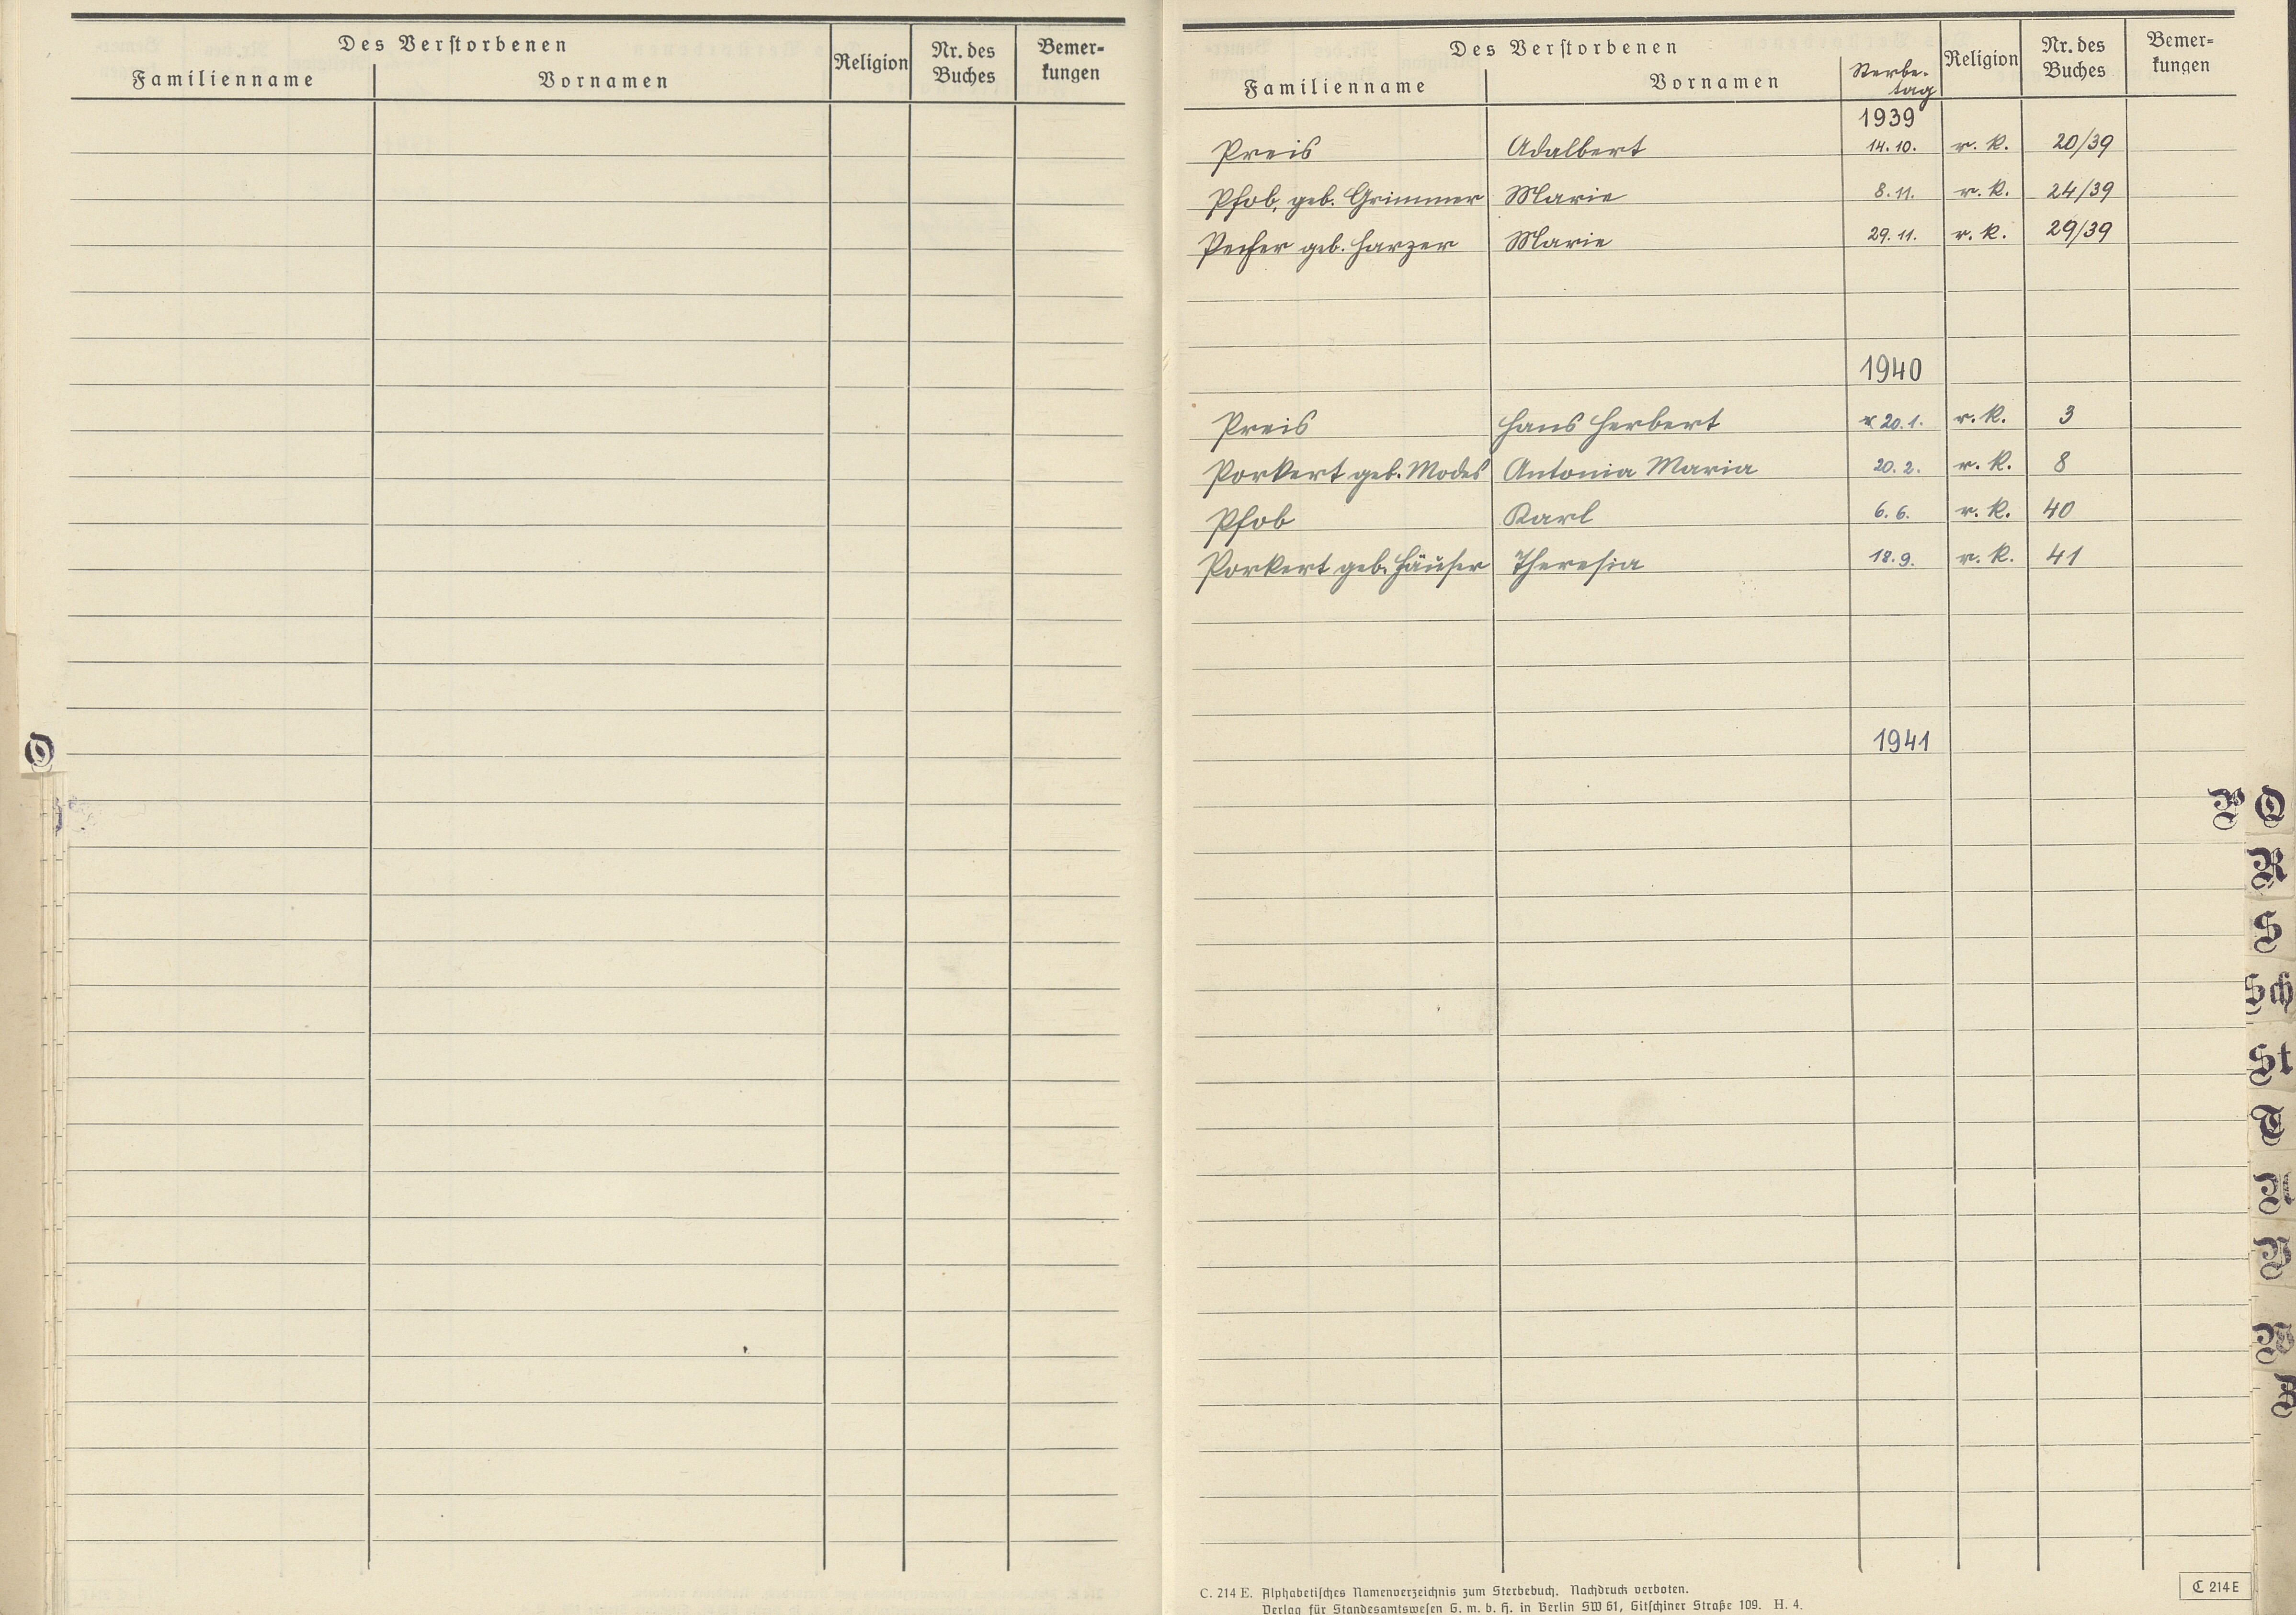 Des Verstorbenen
Familienname Vornamen Religion Nr. des Buches Bemer-kungen
O
Des Verstorbenen
Familienname Vornamen Sterbe-tag Religion Nr. des Buches Bemer-kungen
1939
Preis Adalbert 14.10. r. k. 20/39
Pfob, geb. Grimmer Marie 8.11. r. k. 24/39
Pecher geb. Harzer Marie 29.11. r. k. 29/39
1940
Preis Hans Herbert 20.1. r. k. 3
Porkert geb. Modes Antonia Maria 20.2. r. k. 8
Pfob Karl 6.6. r. k. 40
Porkert geb. Häuser Theresia 18.9. r. k. 41
1941
P Q
R
S
Sch
St
T
U
V
W
C. 214 E. Alphabetisches Namenverzeichnis zum Sterbebuch. Nachdruck verboten.
Verlag für Standesamtswesen G. m. b. H. in Berlin SW 61, Gitschiner Straße 109. H. 4.
C 214 E